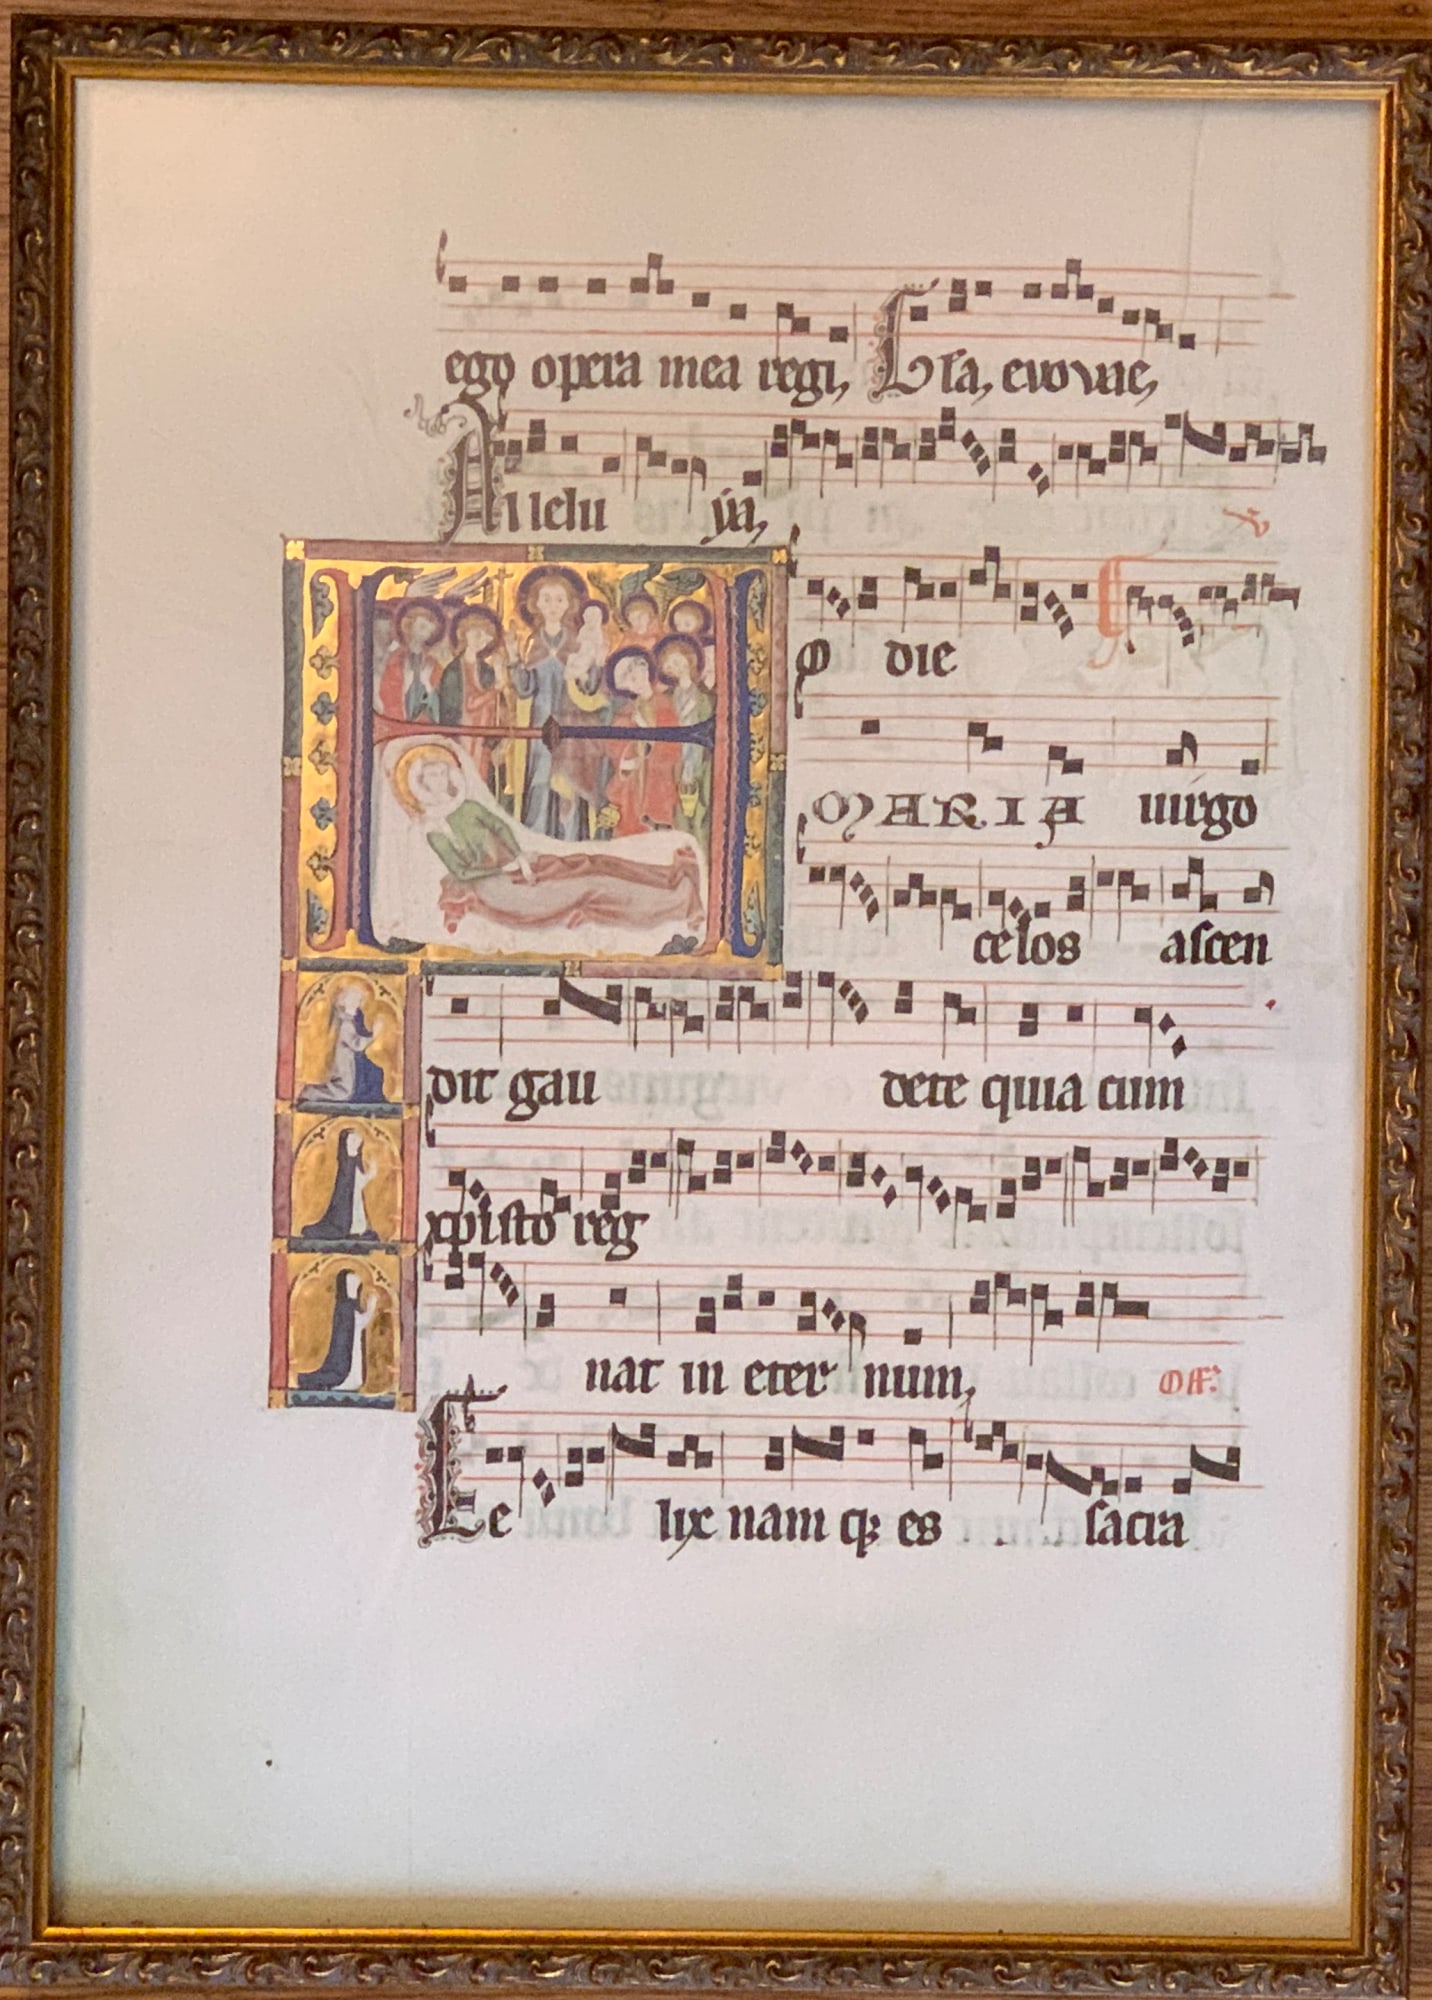 ego opera mea regi, Gla, evovae,
Allelu ya,
Ho die
MARIA uirgo
celos ascen
dit gau dete quia cum
xpisto reg
nat in eternum, Off.
Felix nam q; es sacra